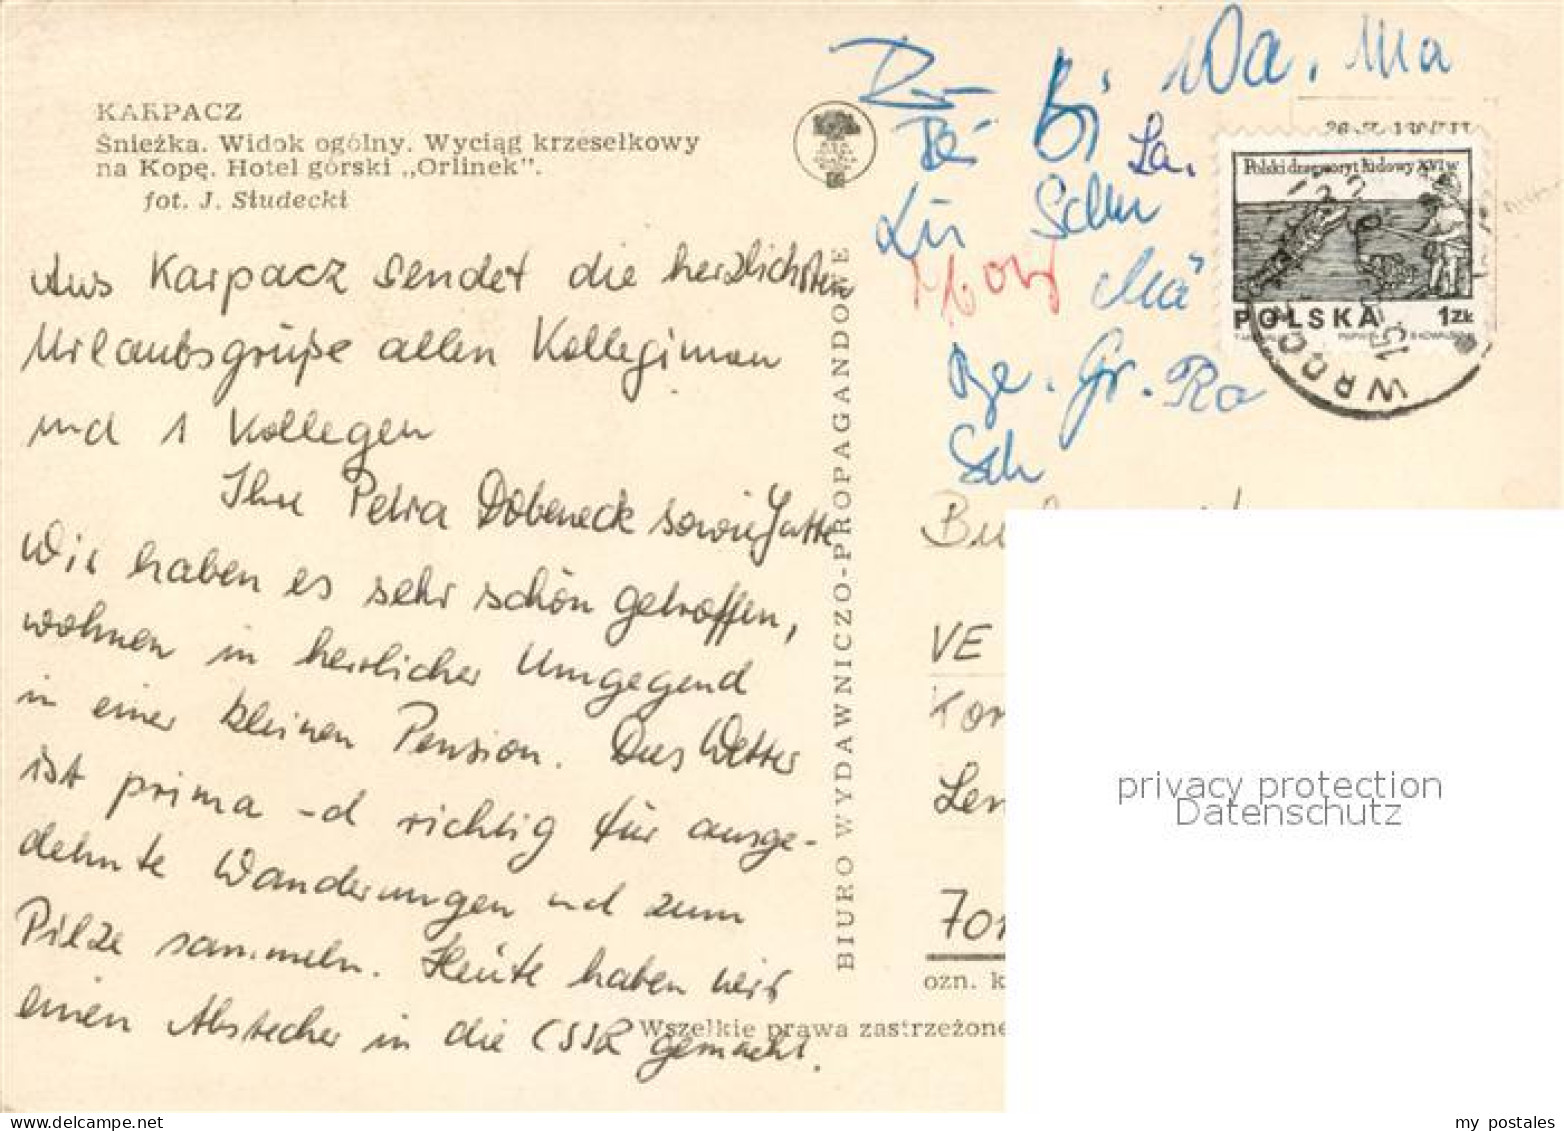 KARPACZ
Śnieżka. Widok ogólny. Wyciąg krzesełkowy
na Kopę. Hotel górski „Orlinek".
fot. J. Studecki
Aus Karpacz sendet die herzlichsten
Urlaubsgrüße allen Kolleginnen
und 1 Kollegen
Ihre Petra Dobeneck sowie Gatte
Wir haben es sehr schön getroffen,
wohnen in herrlicher Umgegend
in einer kleinen Pension. Das Wetter
ist prima -d richtig für ausge-
dehnte Wanderungen und zum
Pilze sammeln. Heute haben wir
einen Abstecher in die CSSR gemacht.
BIURO WYDAWNICZO-PROPAGANDOWE
Wa. Ma
Bi
La.
Lü Schu
Mä
Be. Gr. Ra
Sch
Polski drzeworyt ludowy XVI w.
POLSKA 1 Zł
VE
Len
701
ozn. k
Wszelkie prawa zastrzeżone
privacy protection
Datenschutz
my postales